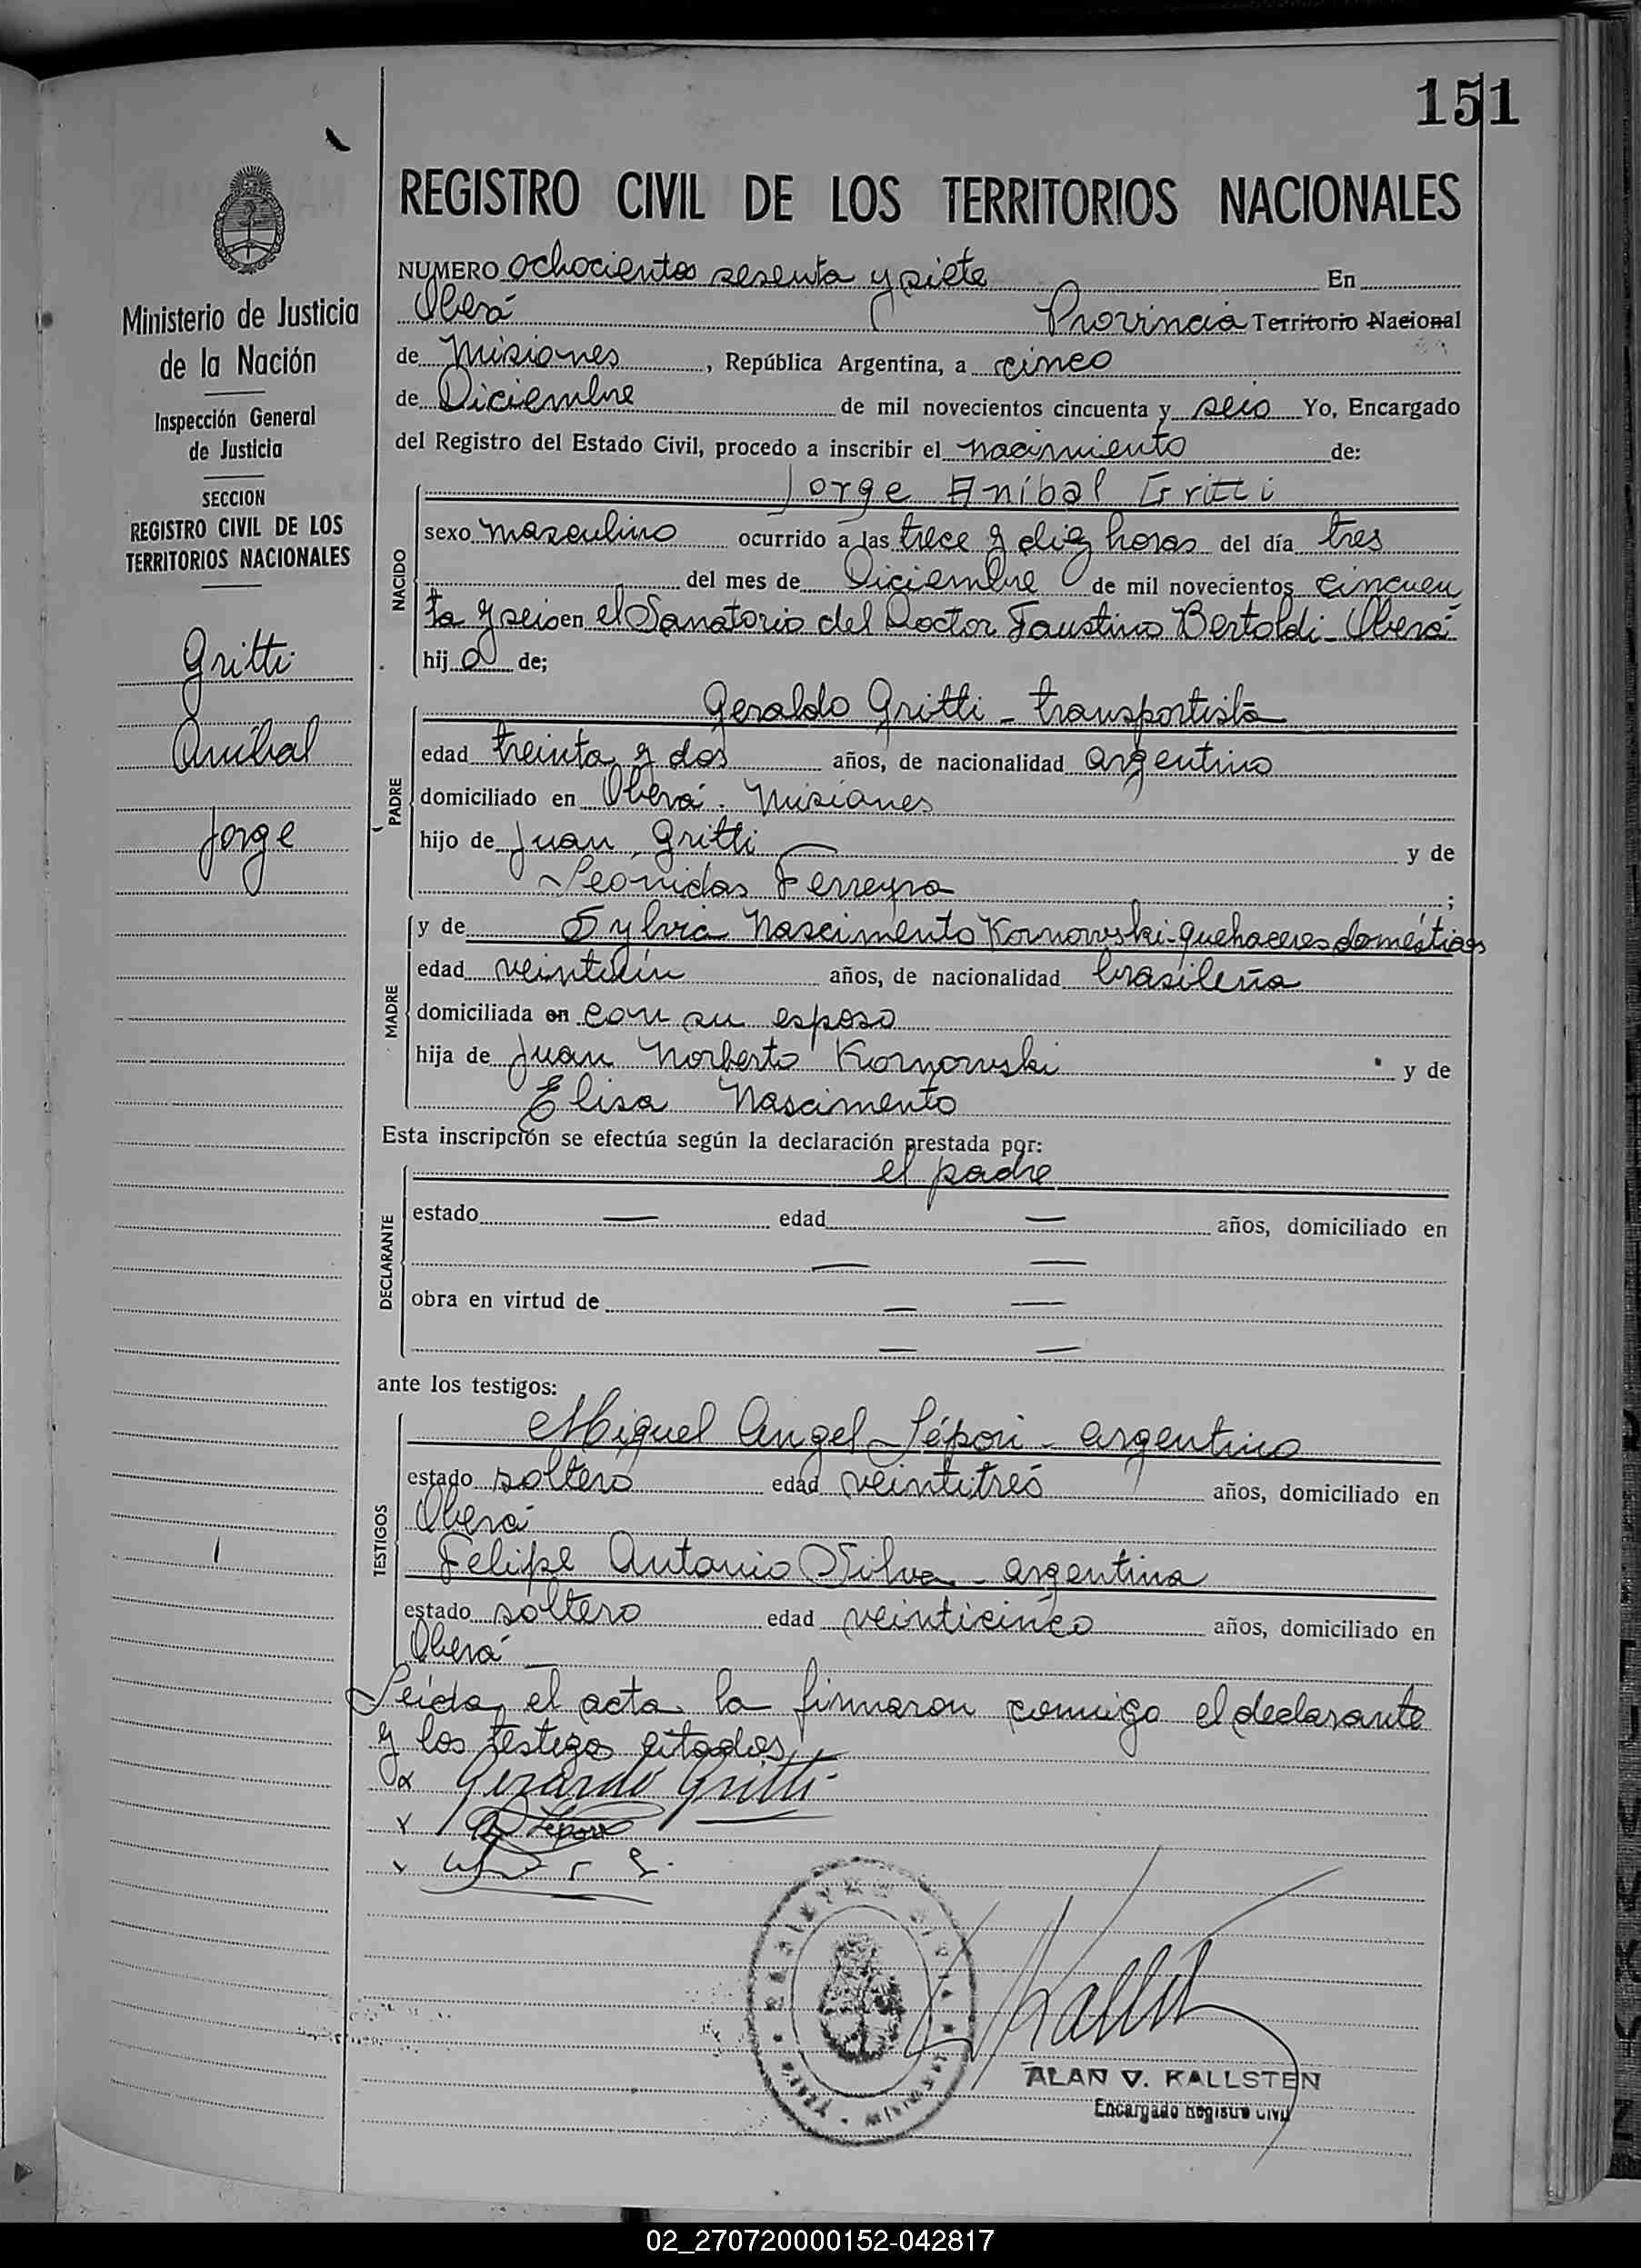 151
REGISTRO CIVIL DE LOS TERRITORIOS NACIONALES
Ministerio de Justicia
de la Nación
Inspección General
de Justicia
SECCION
REGISTRO CIVIL DE LOS
TERRITORIOS NACIONALES
Gritti
Aníbal
Jorge
NUMERO Ochocientos sesenta y siete En
Oberá Provincia Territorio Nacional
de Misiones, República Argentina, a cinco
de Diciembre de mil novecientos cincuenta y seis Yo, Encargado
del Registro del Estado Civil, procedo a inscribir el nacimiento de:
Jorge Aníbal Gritti
NACIDO
sexo masculino ocurrido a las trece y diez horas del día tres
del mes de Diciembre de mil novecientos cincuen
ta y seis en el Sanatorio del Doctor Faustino Bertoldi - Oberá
hijo de;
Geraldo Gritti - transportista
PADRE
edad treinta y dos años, de nacionalidad argentino
domiciliado en Oberá. Misiones
hijo de Juan Gritti y de
Leonidas Ferreyra ;
MADRE
y de Sylvia Nascimento Kornowski - quehaceres domésticos
edad veintiún años, de nacionalidad brasileña
domiciliada en con su esposo
hija de Juan Norberto Kornowski y de
Elisa Nascimento
Esta inscripción se efectúa según la declaración prestada por:
el padre
DECLARANTE
estado — edad — años, domiciliado en
— —
obra en virtud de — —
— —
ante los testigos:
TESTIGOS
Miguel Angel Lépori - argentino
estado soltero edad veintitrés años, domiciliado en
Oberá
Felipe Antonio Silva - argentino
estado soltero edad veinticinco años, domiciliado en
Oberá
Leída el acta la firmaron conmigo el declarante
y los testigos citados
Gerardo Gritti
Lépori
Kallsten
ALAN V. KALLSTEN
Encargado Registro Civil
02_270720000152-042817